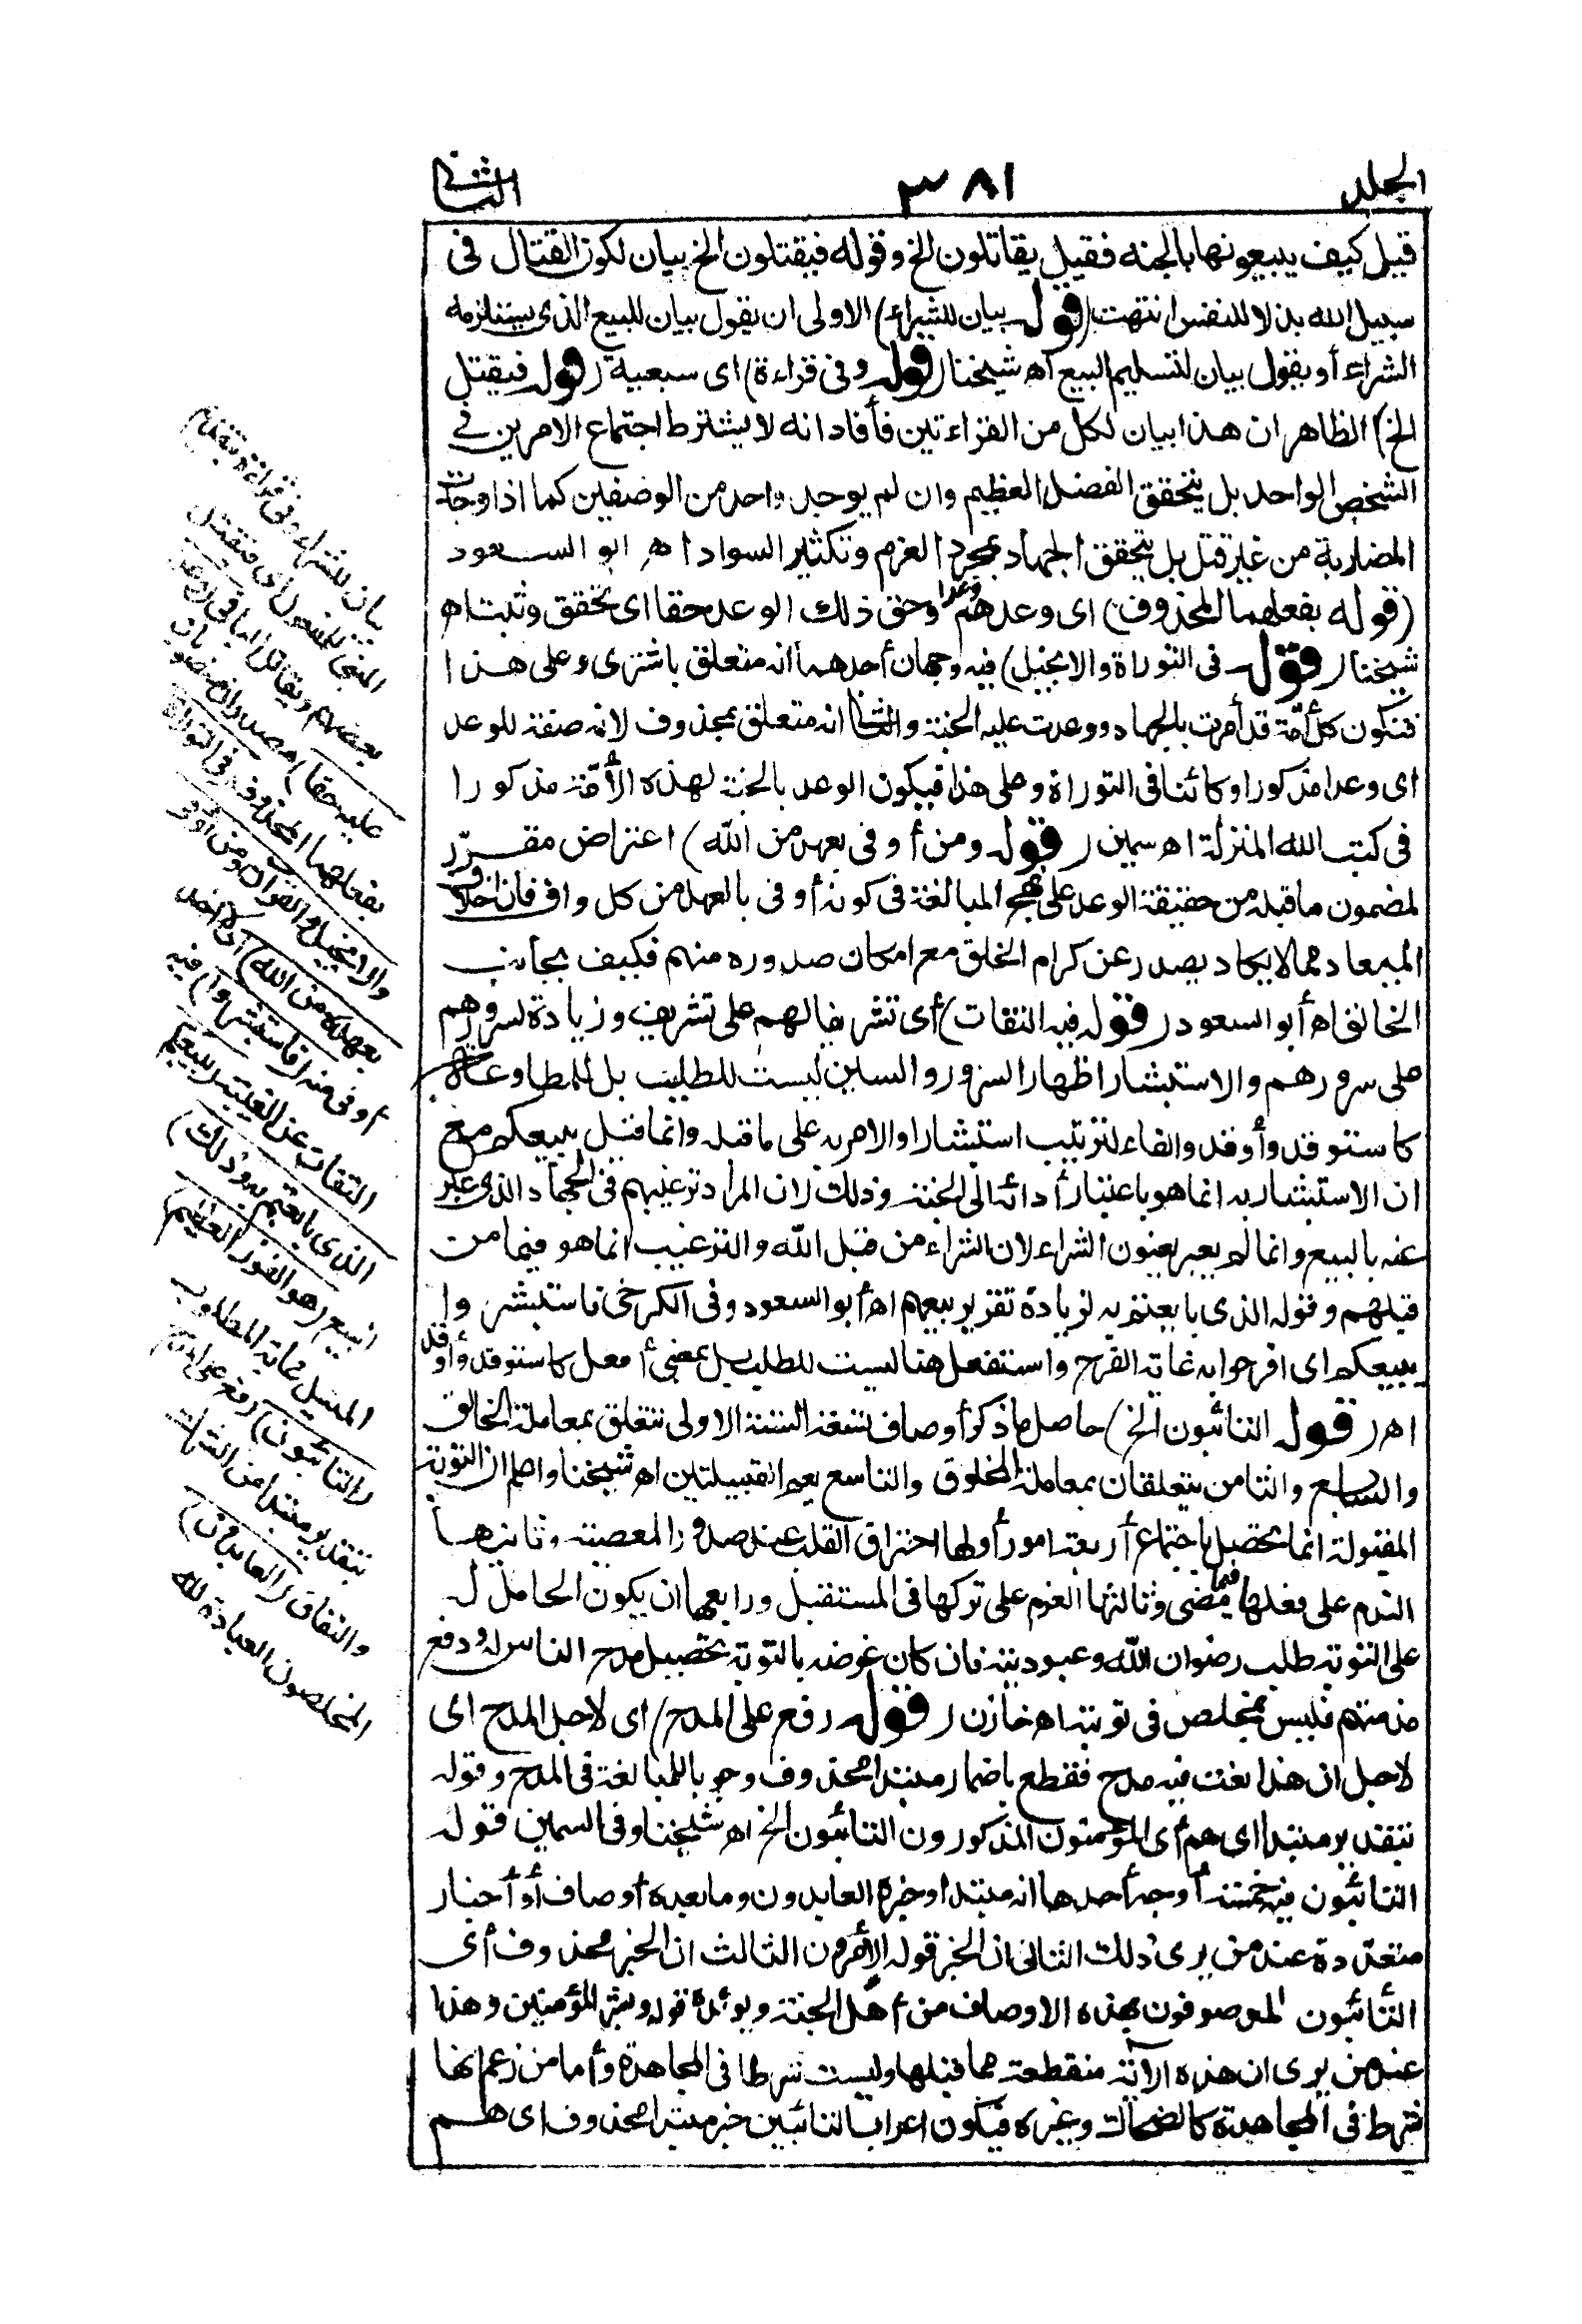 الجلد ٣٨١ الثانى
قيل كيف يبيعونها بالجنه فقيل يقاتلون الخ وقوله فيقتلون الخ بيان لكون القتال فى
سبيل الله بذلا للنفس انتهت (قوله بيان للشراء) الاولى ان يقول بيان للبيع الذى يستلزمه
الشراء أو يقول بيان لتسليم المبيع اه شيخنا (قوله وفى قراءة) اى سبعية (قوله فيقتل
الخ) الظاهر ان هذا بيان لكل من القراءتين فأفاد انه لا يشترط اجتماع الامرين فى
الشخص الواحد بل يتحقق الفضل العظيم وان لم يوجد واحد من الوصفين كما اذا وجدت
المضاربة من غير قتل بل يتحقق الجهاد بمجرد العزم وتكثير السواد اه ابو السعود
(قوله بفعلهما المحذوف) اى وعدهم وعدا وحق ذلك الوعد حقا اى تحقق وثبت اه
شيخنا (قوله فى التوراة والانجيل) فيه وجهان أحدهما انه متعلق باشترى وعلى هذا
فتكون كل أمّة قد أمرت بالجهاد ووعدت عليه الجنة والثانى انه متعلق بمحذوف لانه صفة للوعد
اى وعدا مذكورا وكائنا فى التوراة وعلى هذا فيكون الوعد بالجنة لهذه الأمّة مذكورا
فى كتب الله المنزلة اه سمين (قوله ومن أوفى بعهده من الله) اعتراض مقرّر
لمضمون ما قبله من حقيقة الوعد على نهج المبالغة فى كونه أوفى بالعهد من كل واف فان اخلاف
الميعاد مما لا يكاد يصدر عن كرام الخلق مع امكان صدوره منهم فكيف بجانب
الخالق اه أبو السعود (قوله فيه التفات) أى تشريفا لهم على تشريف وزيادة لسرورهم
على سرورهم والاستبشار اظهار السرور والسين ليست للطلب بل للمطاوعة
كاستوقد وأوقد والفاء لترتيب استبشارا والامر به على ما قبله وانما قيل ببيعكم مع
ان الاستبشار به انما هو باعتبار أدائه الى الجنة وذلك لان المراد ترغيبهم فى الجهاد الذى عبر
عنه بالبيع وانما لم يعبر بعنون الشراء لان الشراء من قبل الله والترغيب انما هو فيما من
قبلهم وقوله الذى بايعتم به لزيادة تقرير بيعهم اه أبو السعود وفى الكرخى فاستبشروا
ببيعكم اى افرحوا به غاية الفرح واستفعل هنا ليست للطلب بل بمعنى أفعل كاستوقد وأوقد
اه (قوله التائبون الخ) حاصل ما ذكر أوصاف تسعة الستة الاولى تتعلق بمعاملة الخالق
والسابع والثامن يتعلقان بمعاملة المخلوق والتاسع يعم القبيلتين اه شيخنا واعلم ان التوبة
المقبولة انما تحصل باجتماع أربعة امور أولها احتراق القلب عند صدور المعصية وثانيها
الندم على فعلها فيما مضى وثالثها العزم على تركها فى المستقبل ورابعها ان يكون الحامل ل
على التوبة طلب رضوان الله وعبوديته فان كان غرضه بالتوبة تحصيل مدح الناس له ودفع
مذمتهم فليس بمخلص فى توبته اه خازن (قوله رفع على المدح) اى لاجل المدح اى
لاجل ان هذا نعت فيه مدح فقطع باضمار مبتدا محذوف وجوبا للمبالغة فى المدح وقوله
بتقدير مبتدا اى هم أى المؤمنون المذكورون التائبون الخ اه شيخنا وفى السمين قوله
التائبون فيه خمسة أوجه أحدها انه مبتدا وخبره العابدون وما بعده أوصاف أو أخبار
متعدّدة عند من يرى ذلك الثانى ان الخبر قوله الآمرون الثالث ان الخبر محذوف أى
التائبون الموصوفون بهذه الاوصاف من أهل الجنة ويؤيده قوله وبشر المؤمنين وهذا
عند من يرى ان هذه الآية منقطعة مما قبلها وليست شرطا فى المجاهدة وأما من زعم انها
شرط فى المجاهدة كالضحاك وغيره فيكون اعراب التائبين خبر مبتدا محذوف اى هم
بيان للشراء وفى قراءة بتقديم
المبنى للمفعول أى فيقتل
بعضهم ويقاتل الباقى (وعدا
عليه حقا) مصدران منصوبان
بفعلهما المحذوف (فى التوراة
والانجيل والقرآن ومن أوفى
بعهده من الله) أى لا أحد
أوفى منه (فاستبشروا) فيه
التفات عن الغيبة (ببيعكم
الذى بايعتم به وذلك)
البيع (هو الفوز العظيم)
المنيل غاية المطلوب
(التائبون) رفع على المدح
بتقدير مبتدا من الشرك
والنفاق (العابدون)
المخلصون العبادة لله